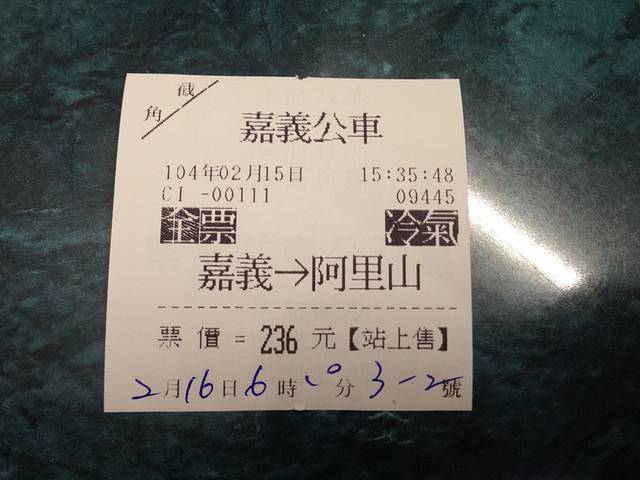 截
角
嘉義公車
104年02月15日 15:35:48
CI -00111 09445
全票 冷氣
嘉義→阿里山
票 價 = 236 元【站上售】
2月16日6時10分3-2號